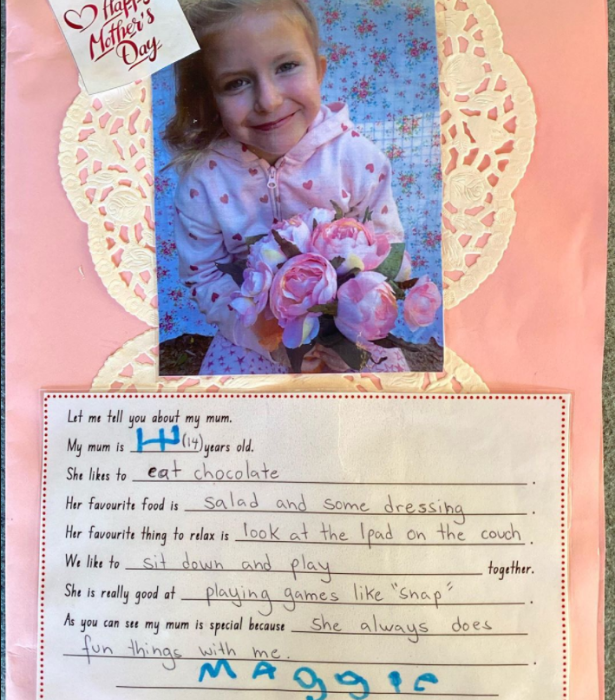 Happy
Mother's
Day
Let me tell you about my mum.
My mum is (14) years old.
She likes to eat chocolate.
Her favourite food is salad and some dressing.
Her favourite thing to relax is look at the Ipad on the couch.
We like to sit down and play together.
She is really good at playing games like "snap".
As you can see my mum is special because she always does
fun things with me.
MAggie